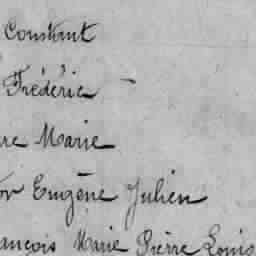 Constant
Frédéric
re Marie
or Eugène Julien
ançois Marie Pierre Louis